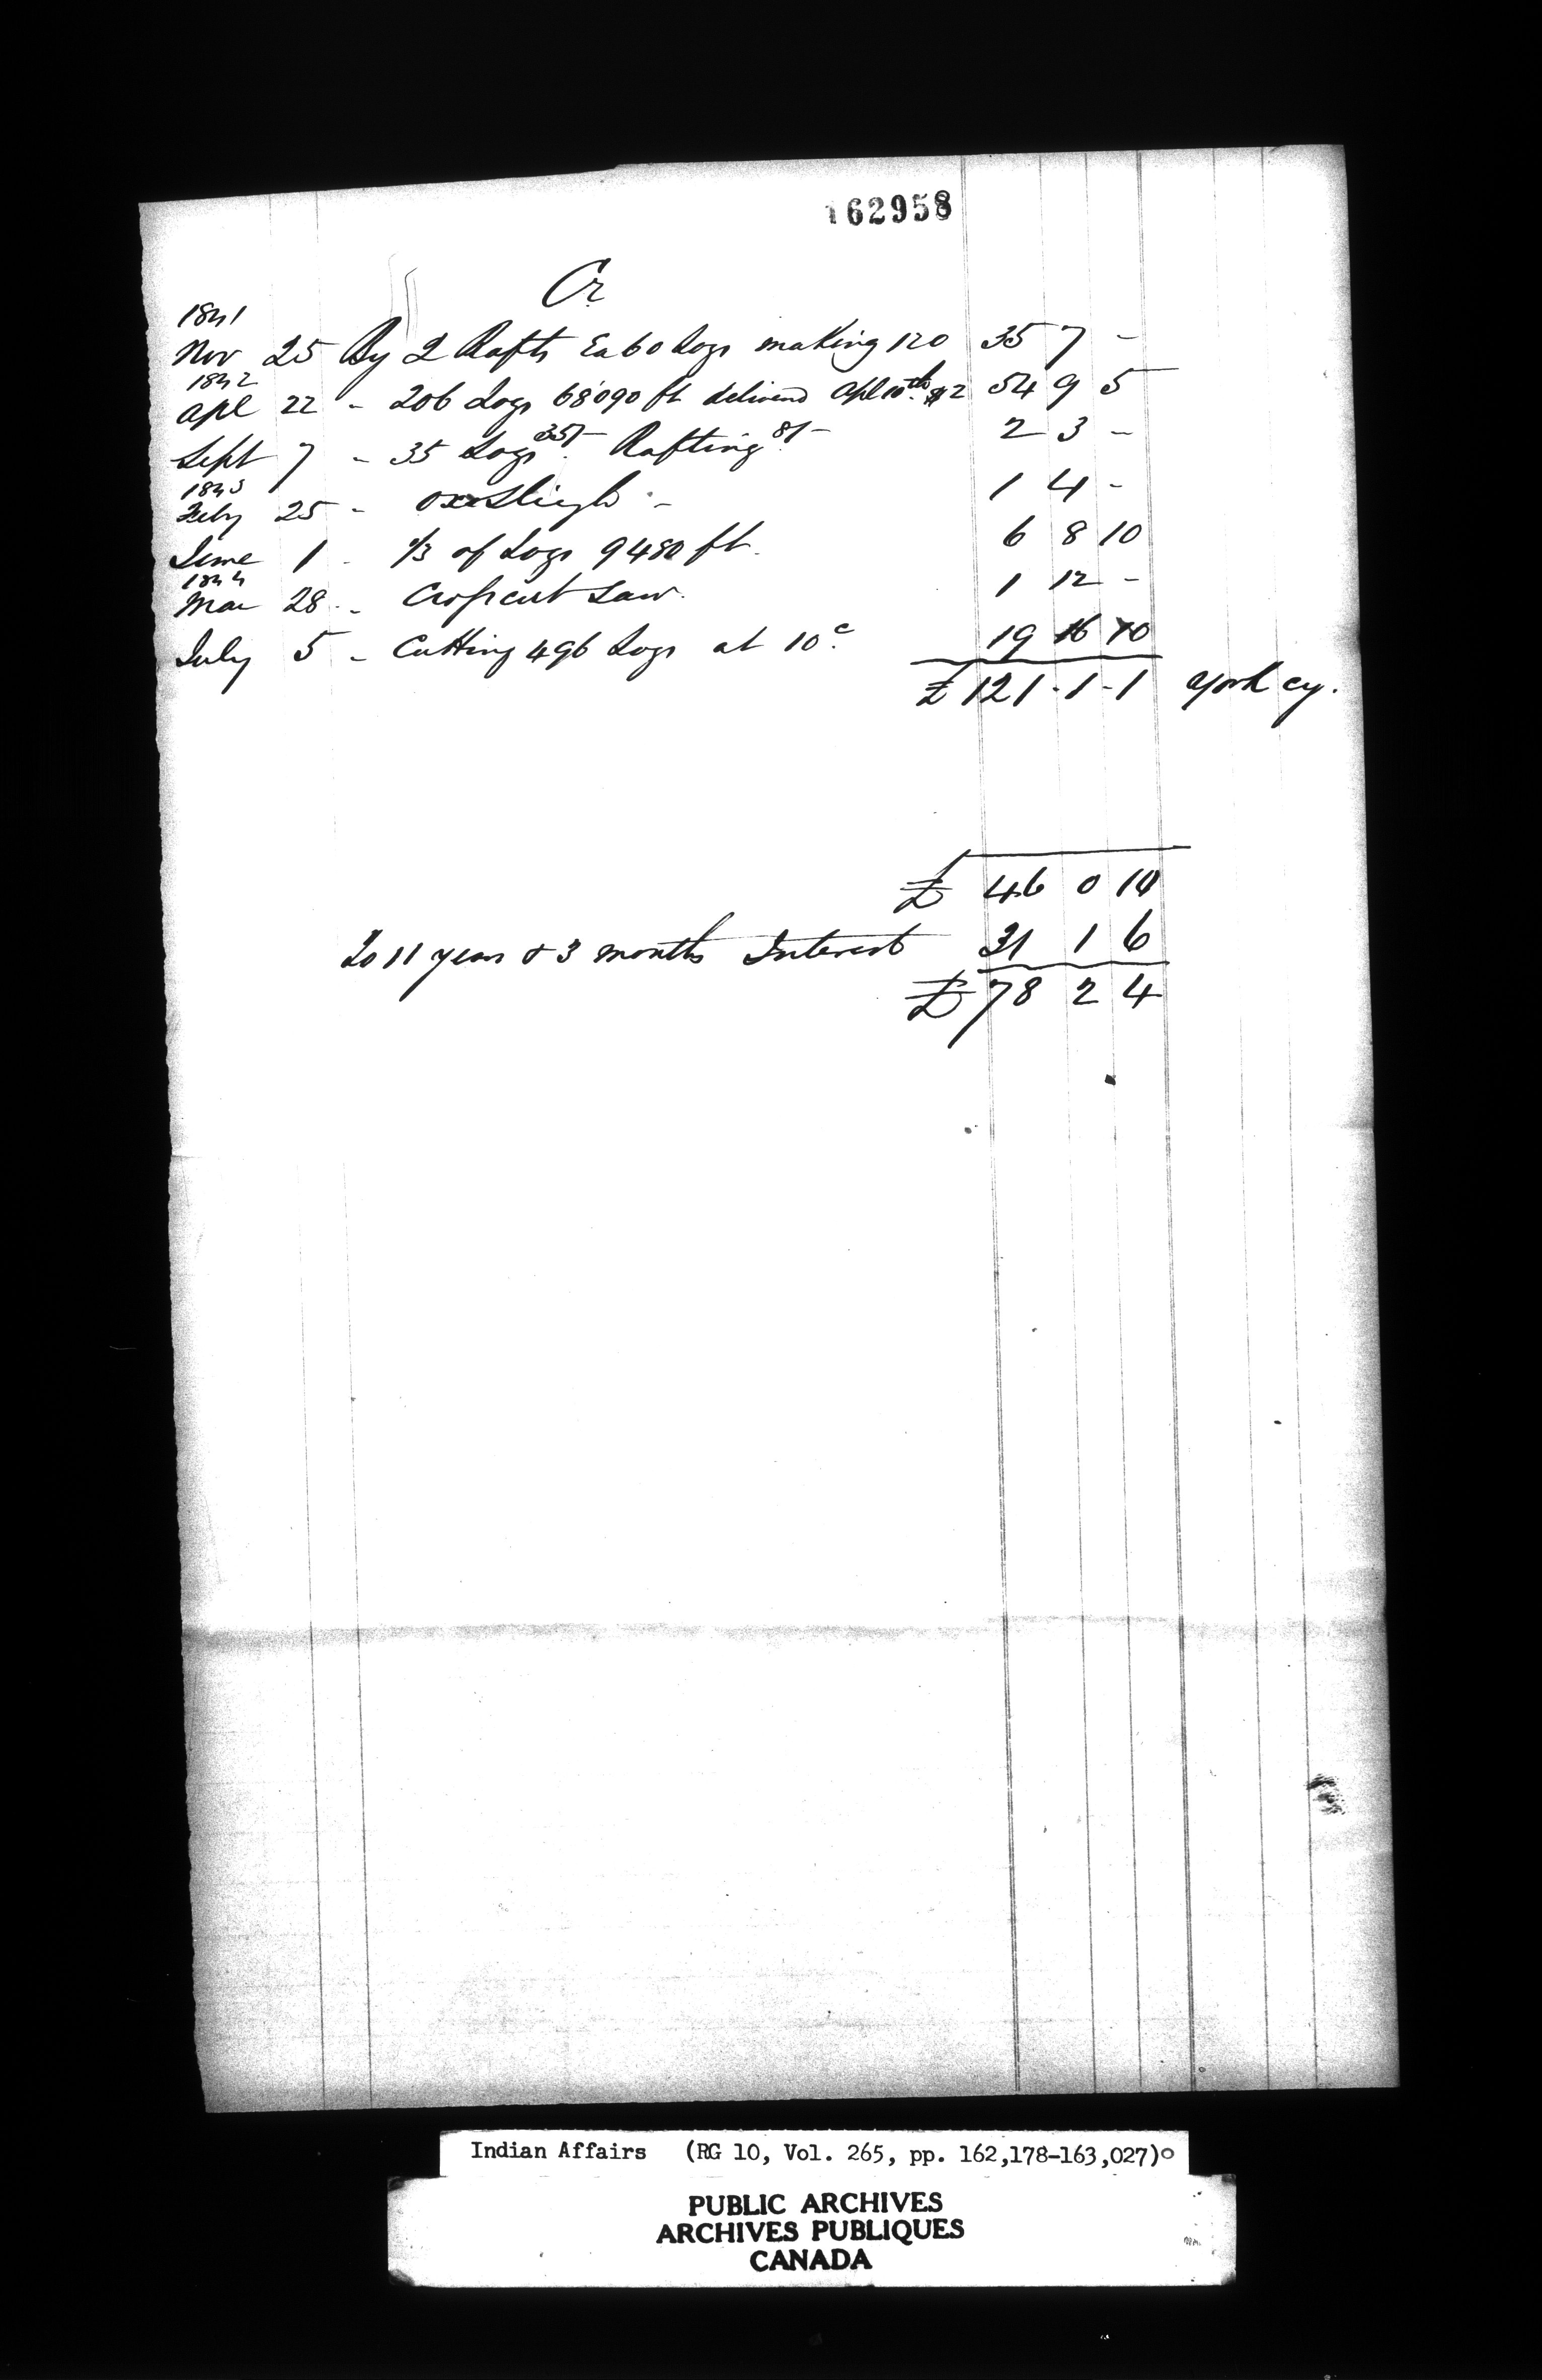 162958
Cr
1841
Nov 25 By 2 Rafts Ea 60 Logs making 120 35 7 -
1842
Apl 22 - 206 Logs 68'090 ft delivered Apl 10th 42 54 9 5
Sept 7 - 35 Logs 35/- Rafting 8/- 2 3 -
1843
Feby 25 - Ox Sleigh - 1 4 -
June 1 - 1/3 of Logs 9480 ft. 6 8 10
1844
Mar 28 - Crosscut Saw. 1 12 -
July 5 - Cutting 496 Logs at 10c 19 16 10
£ 121-1-1 York cy.
£ 46 0 10
To 11 years & 3 months Interest 31 1 6
£ 78 2 4
Indian Affairs (RG 10, Vol. 265, pp. 162,178-163,027)
PUBLIC ARCHIVES
ARCHIVES PUBLIQUES
CANADA